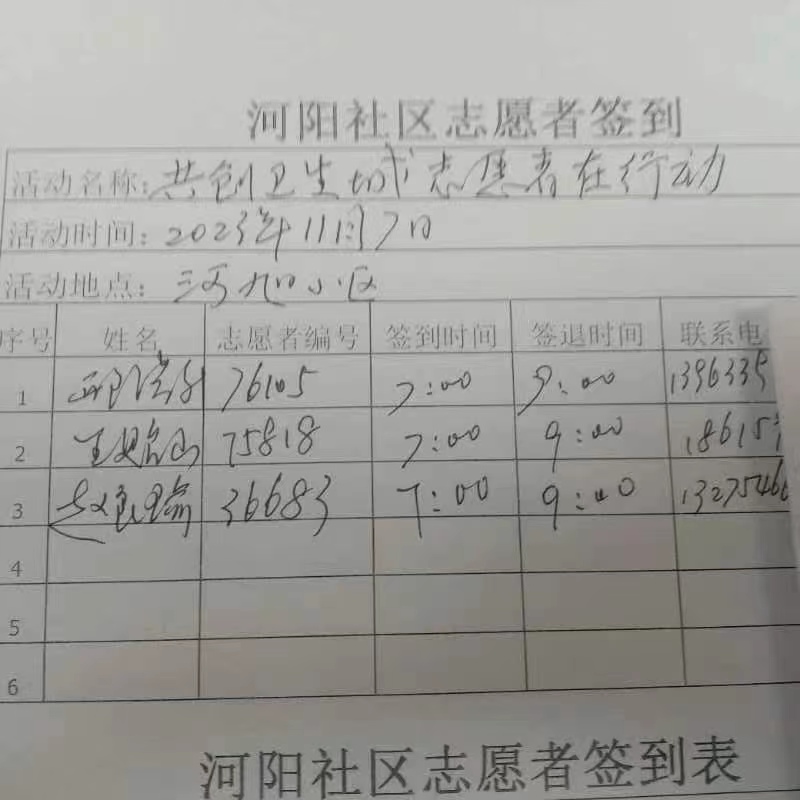 河阳社区志愿者签到
活动名称:共创卫生城志愿者在行动
活动时间:2023年11月7日
活动地点:河阳小区
序号 姓名 志愿者编号 签到时间 签退时间 联系电
1 76105 7:00 9:00 1396335
2 75818 7:00 9:00 18615
3 36683 7:00 9:00 13275466
4
5
6
河阳社区志愿者签到表